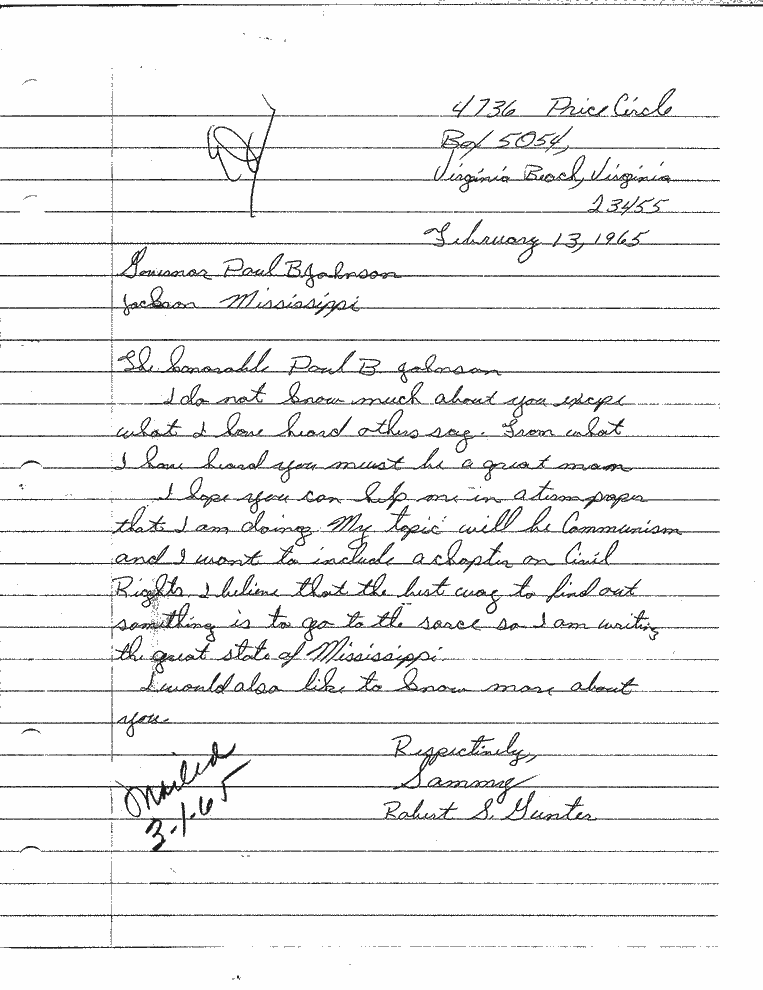 4736 Price Circle
Box 5054,
Virginia Beach, Virginia
23455
February 13, 1965
Governor Paul B Johnson
Jackson Mississippi
The honorable Paul B. Johnson
I do not know much about you except
what I have heard others say. From what
I have heard you must be a great man
I hope you can help me in a term paper
that I am doing. My topic will be Communism
and I want to include a chapter on Civil
Rights. I believe that the best way to find out
something is to go to the sorce so I am writing
the great state of Mississippi.
I would also like to know more about
you.
Respectively,
Sammy
Robert S. Gunter
Mailed
3-1-65